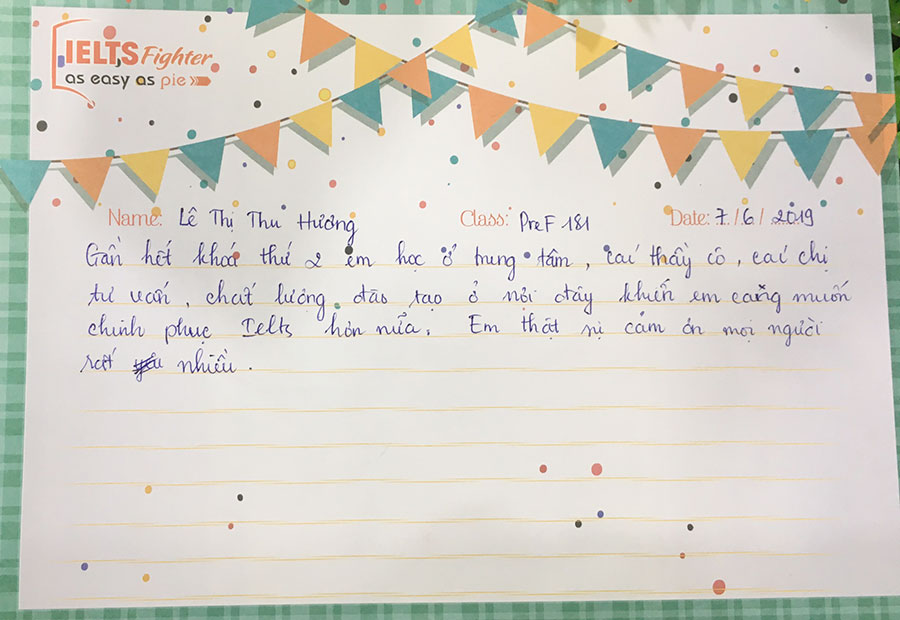 IELTS Fighter
as easy as pie
Name: Lê Thị Thu Hương Class: PreF 181 Date: 7/6/2019
Gần hết khoá thứ 2 em học ở trung tâm, các thầy cô, các chị
tư vấn, chất lượng đào tạo ở nơi đây khiến em càng muốn
chinh phục Ielts hơn nữa. Em thật sự cảm ơn mọi người
rất nhiều.